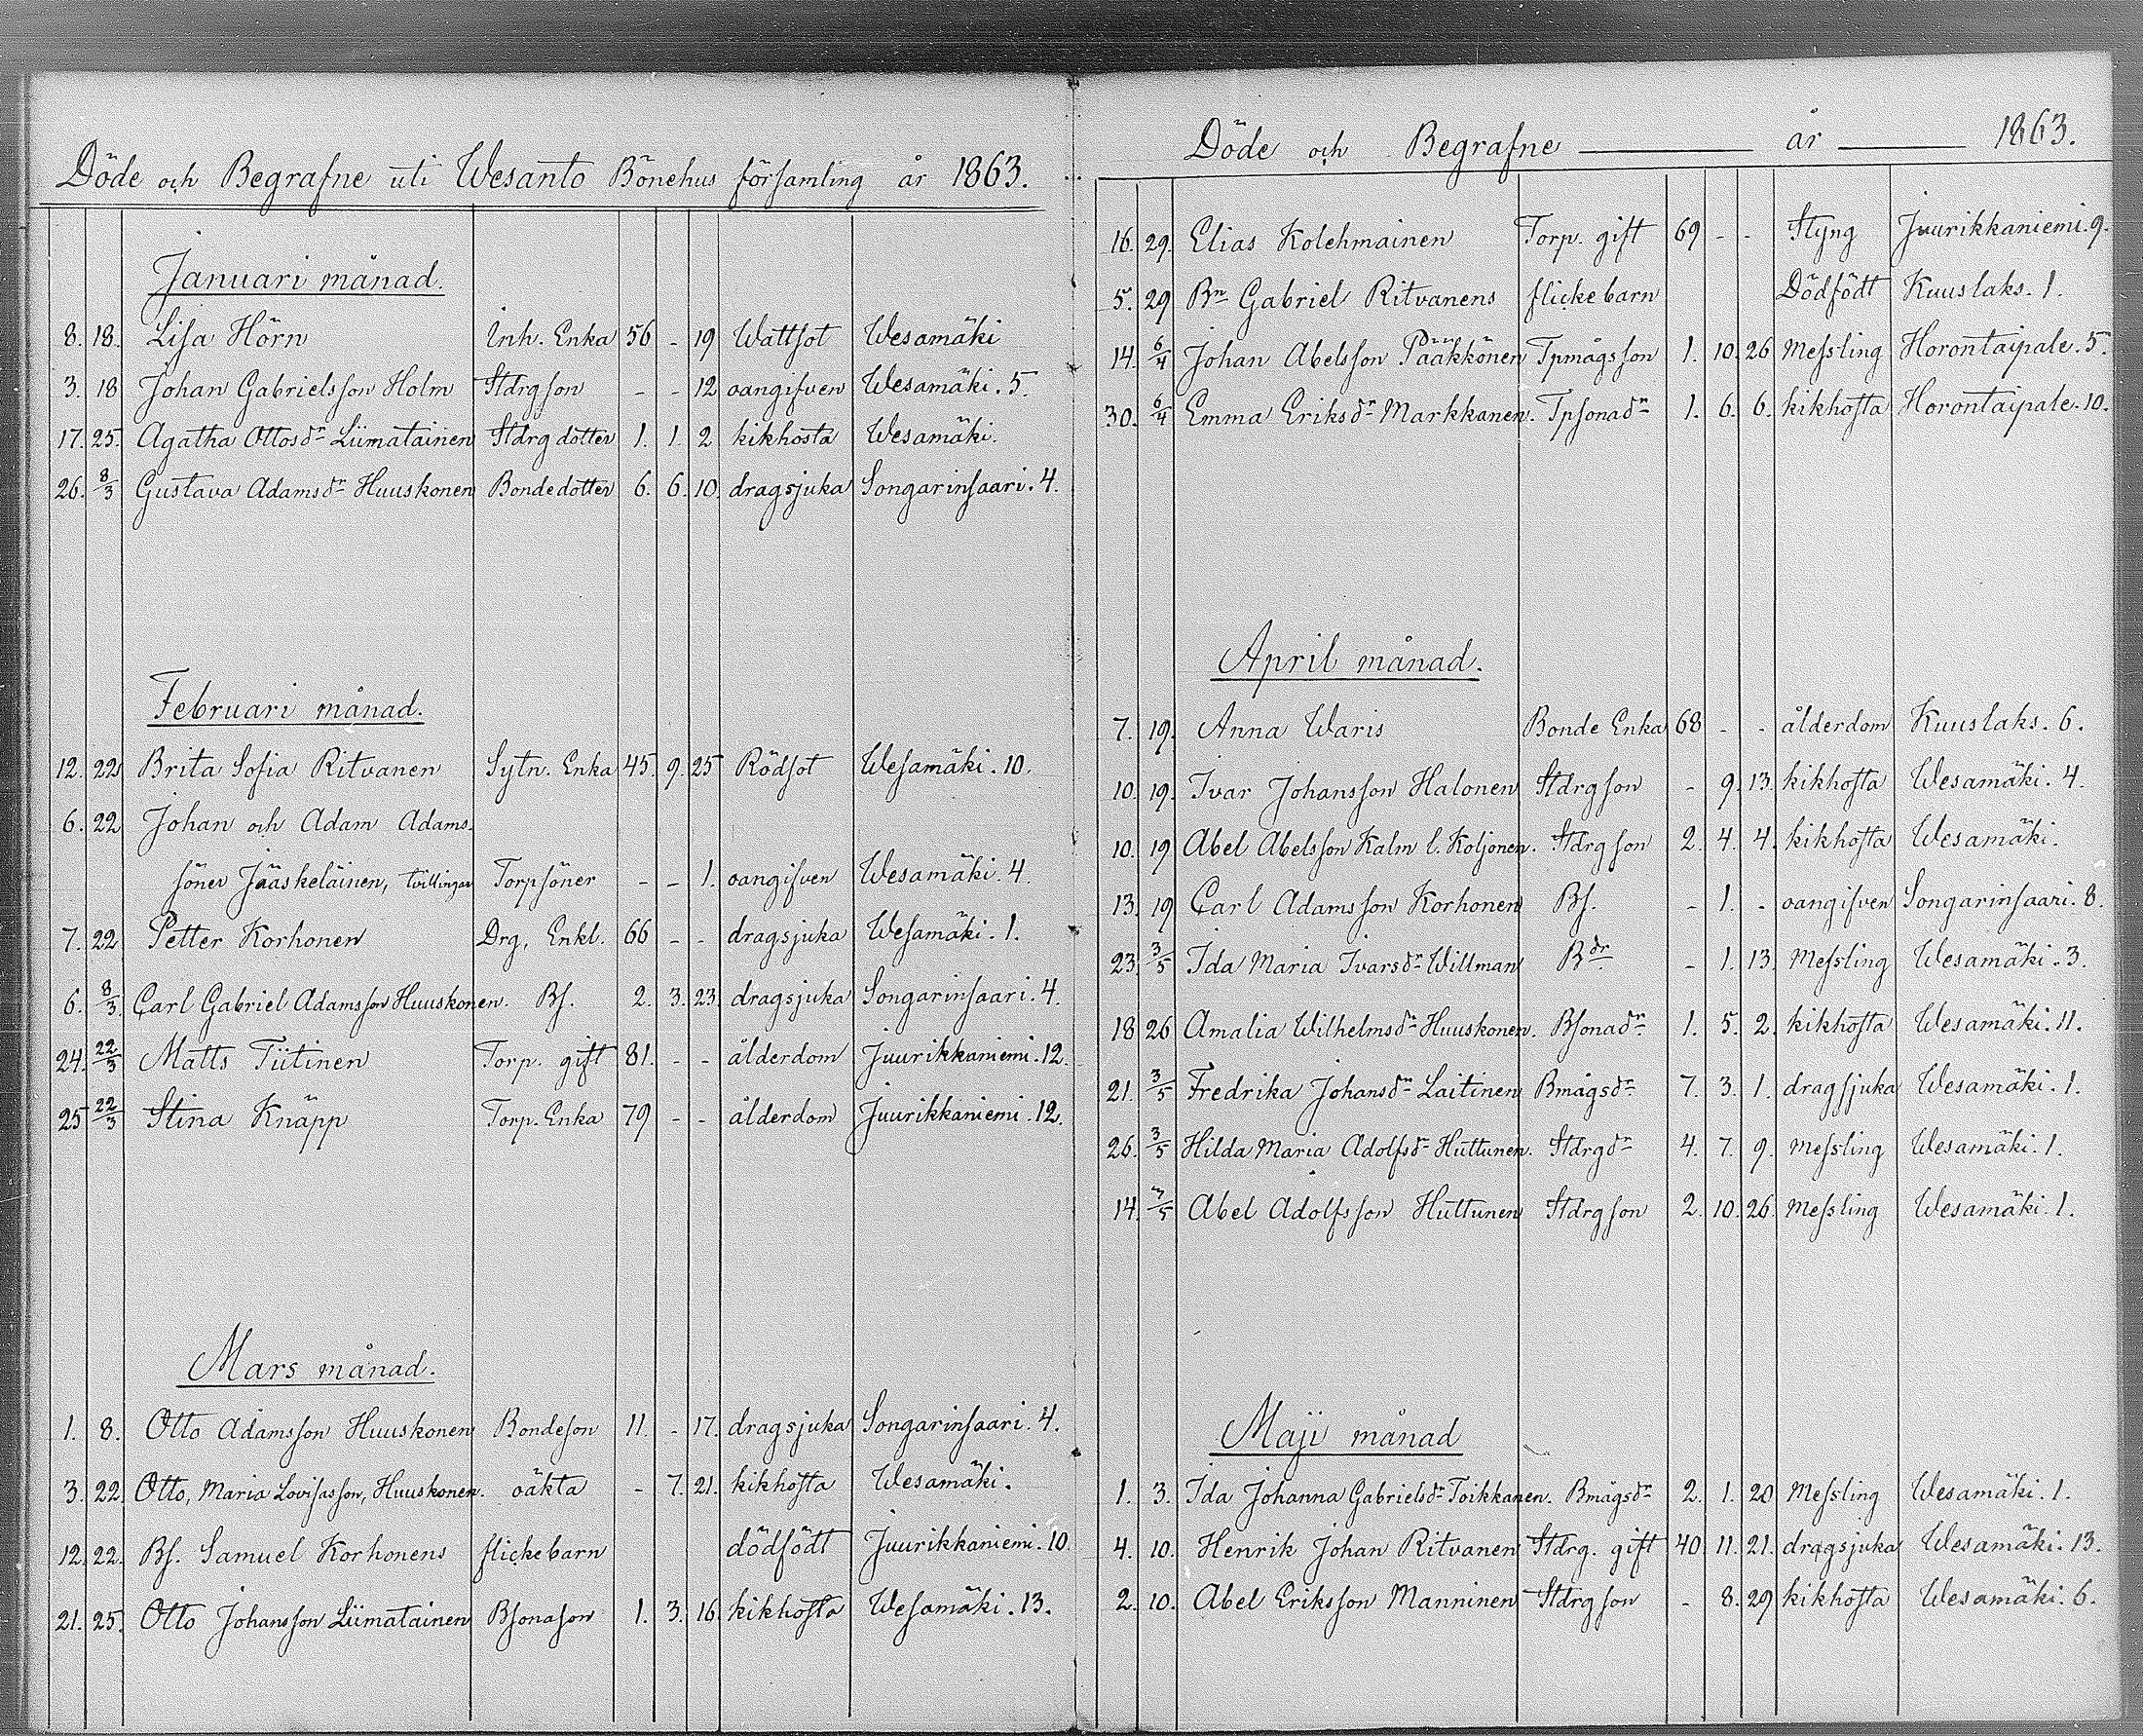 Döde och Begrafne uti Wesanto Bönehus församling år 1863.
Januari månad.
8. 18. Lisa Hörn Inh. Enka 56 - 19 Wattsot Wesamäki
3. 18 Johan Gabrielsson Holm Stdrgson - - 12 oangifven Wesamäki. 5.
17. 25. Agatha Ottosdr Liimatainen Stdrgdotter 1. 1. 2 kikhosta Wesamäki.
26. 8/3 Gustava Adamsdr Huuskonen Bondedotter 6. 6. 10. dragsjuka Songarinsaari. 4.
Februari månad.
12. 22 Brita Sofia Ritvanen Sytn. Enka 45. 9. 25 Rödsot Wesamäki. 10.
6. 22 Johan och Adam Adams-
söner Jääskeläinen, tvillingar Torpsöner - - 1. oangifven Wesamäki. 4.
7. 22 Petter Korhonen Drg. Enkl. 66 - - dragsjuka Wesamäki. 1.
6. 8/3. Carl Gabriel Adamsson Huuskonen. Bs. 2. 3. 23. dragsjuka Songarinsaari. 4.
24. 22/3 Matts Tiitinen Torp. gift 81. - - ålderdom Juurikkaniemi. 12.
25 22/3 Stina Knäpp Torp. Enka 79 - - ålderdom Juurikkaniemi. 12.
Mars månad.
1. 8. Otto Adamsson Huuskonen Bondeson 11. - 17. dragsjuka Songarinsaari. 4.
3. 22. Otto, Maria Lovisasson, Huuskonen. oäkta - 7. 21. kikhosta Wesamäki.
12. 22. Bs. Samuel Korhonens flickebarn dödfödt Juurikkaniemi. 10.
21. 25. Otto Johansson Liimatainen Bsonason 1. 3. 16. kikhosta Wesamäki. 13.
Döde och Begrafne år 1863.
16. 29. Elias Kolehmainen Torp. gift 69 - - Styng Juurikkaniemi. 9.
5. 29 Bn Gabriel Ritvanens flickebarn Dödfödt Kuuslaks. 1.
14. 6/4 Johan Abelsson Pääkkönen Tpmågsson 1. 10. 26 Messling Horontaipale. 5.
30. 6/4 Emma Eriksdr Markkanen. Tpsonadr 1. 6. 6. kikhosta Horontaipale. 10.
April månad.
7. 19. Anna Waris Bonde Enka 68 - - ålderdom Kuuslaks. 6.
10. 19. Ivar Johansson Halonen Stdrgson - 9. 13. kikhosta Wesamäki. 4.
10. 19 Abel Abelsson Kalm l. Koljonen. Stdrgson 2. 4. 4. kikhosta Wesamäki.
13. 19 Carl Adamsson Korhonen Bs. - 1. - oangifven Songarinsaari. 8.
23. 3/5 Ida Maria Ivarsdr Willman Bdr - 1. 13. Messling Wesamäki. 3.
18 26 Amalia Wilhelmsdr Huuskonen. Bsonadr 1. 5. 2. kikhosta Wesamäki. 11.
21. 3/5 Fredrika Johansdr Laitinen Bmågsdr 7. 3. 1. dragsjuka Wesamäki. 1.
26. 3/5 Hilda Maria Adolfsdr Huttunen. Stdrgdr 4. 7. 9. Messling Wesamäki. 1.
14. 3/5 Abel Adolfsson Huttunen Stdrgson 2. 10. 26. Messling Wesamäki. 1.
Maji månad
1. 3. Ida Johanna Gabrielsdr Toikkanen. Bmågsdr 2. 1. 20 Messling Wesamäki. 1.
4. 10. Henrik Johan Ritvanen Stdrg. gift 40. 11. 21. dragsjuka Wesamäki. 13.
2. 10. Abel Eriksson Manninen Stdrgson - 8. 29 kikhosta Wesamäki. 6.